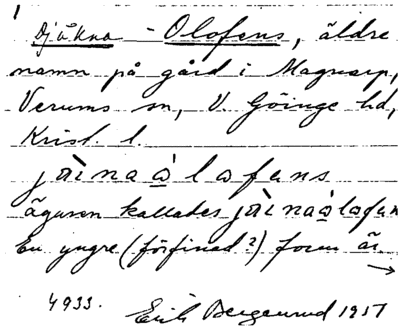 Djäkna - Olofens, äldre
namn på gård i Magnarp,
Verums sn, V. Göinge hd,
Krist. l.
jàinaòlofens
ägaren kallades jàinaòlofen
En yngre (förfinad?) form är
→
4933. Erik Bergenrud 1917